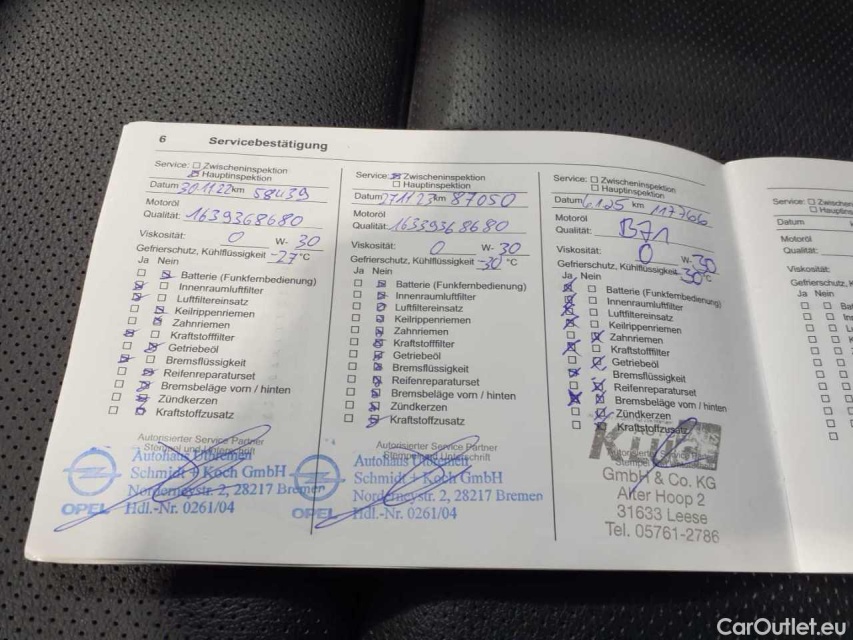 6 Servicebestätigung
Service: Zwischeninspektion
Hauptinspektion
Datum 30.11.22 km 58439
Motoröl
Qualität: 1639368680
Viskosität: 0 W- 30
Gefrierschutz, Kühlflüssigkeit -27 °C
Ja Nein
Batterie (Funkfernbedienung)
Innenraumluftfilter
Luftfiltereinsatz
Keilrippenriemen
Zahnriemen
Kraftstofffilter
Getriebeöl
Bremsflüssigkeit
Reifenreparaturset
Bremsbeläge vorn / hinten
Zündkerzen
Kraftstoffzusatz
Autorisierter Service Partner
Stempel und Unterschrift
Autohaus Utbremen
Schmidt + Koch GmbH
Norderneystr. 2, 28217 Bremen
OPEL Hdl.-Nr. 0261/04
Service: Zwischeninspektion
Hauptinspektion
Datum 27.11.23 km 87050
Motoröl
Qualität: 1639368680
Viskosität: 0 W- 30
Gefrierschutz, Kühlflüssigkeit -30 °C
Ja Nein
Batterie (Funkfernbedienung)
Innenraumluftfilter
Luftfiltereinsatz
Keilrippenriemen
Zahnriemen
Kraftstofffilter
Getriebeöl
Bremsflüssigkeit
Reifenreparaturset
Bremsbeläge vorn / hinten
Zündkerzen
Kraftstoffzusatz
Autorisierter Service Partner
Stempel und Unterschrift
Autohaus Utbremen
Schmidt + Koch GmbH
Norderneystr. 2, 28217 Bremen
OPEL Hdl.-Nr. 0261/04
Service: Zwischeninspektion
Hauptinspektion
Datum km 117766
Motoröl
Qualität: B71
Viskosität: 0 W- 30
Gefrierschutz, Kühlflüssigkeit -30 °C
Ja Nein
Batterie (Funkfernbedienung)
Innenraumluftfilter
Luftfiltereinsatz
Keilrippenriemen
Zahnriemen
Kraftstofffilter
Getriebeöl
Bremsflüssigkeit
Reifenreparaturset
Bremsbeläge vorn / hinten
Zündkerzen
Kraftstoffzusatz
GmbH & Co. KG
Alter Hoop 2
31633 Leese
Tel. 05761-2786
Service: Zwischen
Hauptins
Datum
Motoröl
Qualität:
Viskosität:
Gefrierschutz, K
Ja Nein
CarOutlet.eu